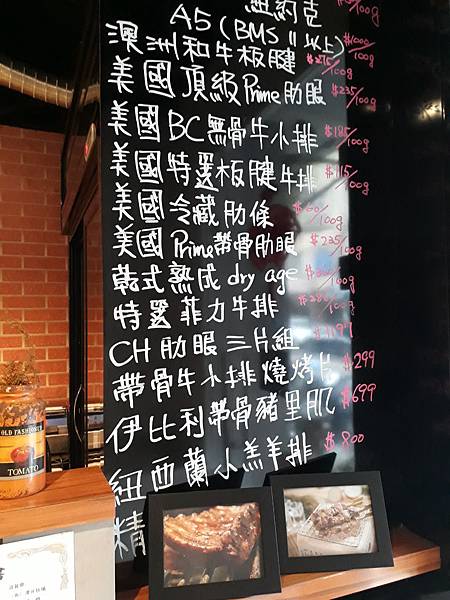 紐約克
A5(BMS 11以上) /100g
澳洲和牛板腱 $275/100g
美國頂級Prime肋眼 $235/100g
美國BC無骨牛小排 $185/100g
美國特選板腱牛排 $115/100g
美國冷藏肋條 /100g
美國Prime帶骨肋眼 $235/100g
乾式熟成 dry age /100g
特選菲力牛排 /100g
CH肋眼三片組
帶骨牛小排燒烤片 $299
伊比利帶骨豬里肌 $699
紐西蘭小羔羊排 $800
精
OLD FASHIONED
TOMATO